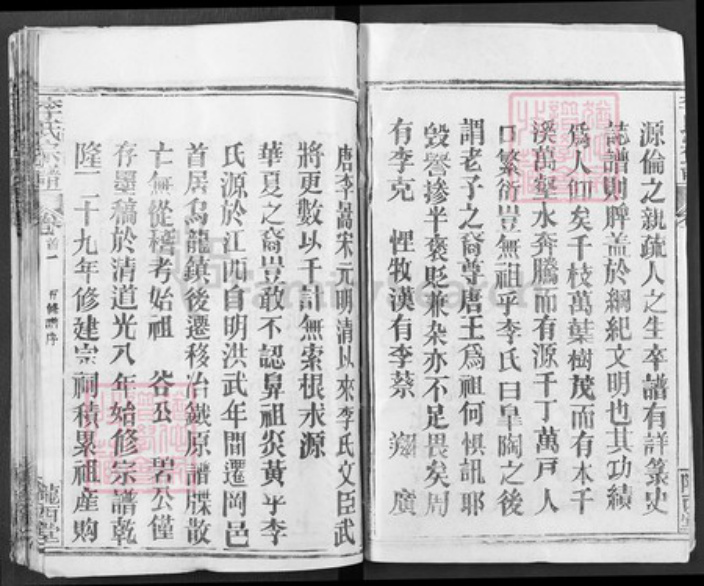 源倫之親疏人之生卒譜有詳箓史
誌譜則脾盖於綱紀文明也其功績
為人和矣千枝萬葉樹茂而有本千
溪萬壑水奔騰而有源千丁萬戸人
口繁衍豈無祖乎李氏曰皐陶之後
謂老子之裔尊唐王為祖何惧訊耶
毀譽摻半褒貶兼杂亦不足畏矣周
有李克 悝牧漢有李蔡 翔 廣
唐李嵩宋元明清以來李氏文臣武
將更數以千計無索根求源
華夏之裔豈敢不認昇祖炎黄乎李
氏源於江西自明洪武年間遷岡邑
首居烏龍鎮後遷移冶鐵原譜牒散
亡無從稽考始祖 谷公 碧公僅
存墨稿於清道光八年始修宗譜乾
隆二十九年修建宗祠積累祖産购
李氏宗譜
卷首一
修譜序
隴西堂